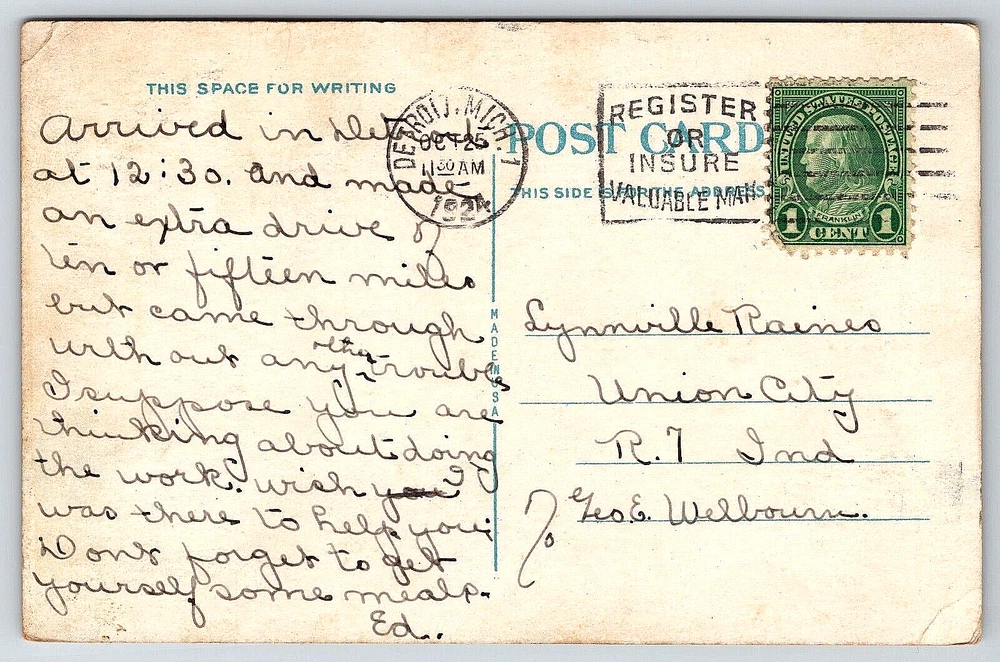 THIS SPACE FOR WRITING
Arrived in Det
at 12:30. and made
an extra drive of
ten or fifteen miles
but came through
with out any other trouble
I suppose you are
thinking about doing
the work. wish you I
was there to help you.
Dont forget to get
yourself some meals.
Ed..
DETROIT, MICH. 1
OCT 25
11 30 AM
1924
POST CARD
THIS SIDE IS FOR THE ADDRESS
REGISTER
OR
INSURE
VALUABLE MAIL
UNITED STATES POSTAGE
FRANKLIN
1 CENT 1
MADE IN USA
Lynnville Raines
Union City
R. 7 Ind
? Geo. E. Welbourn.